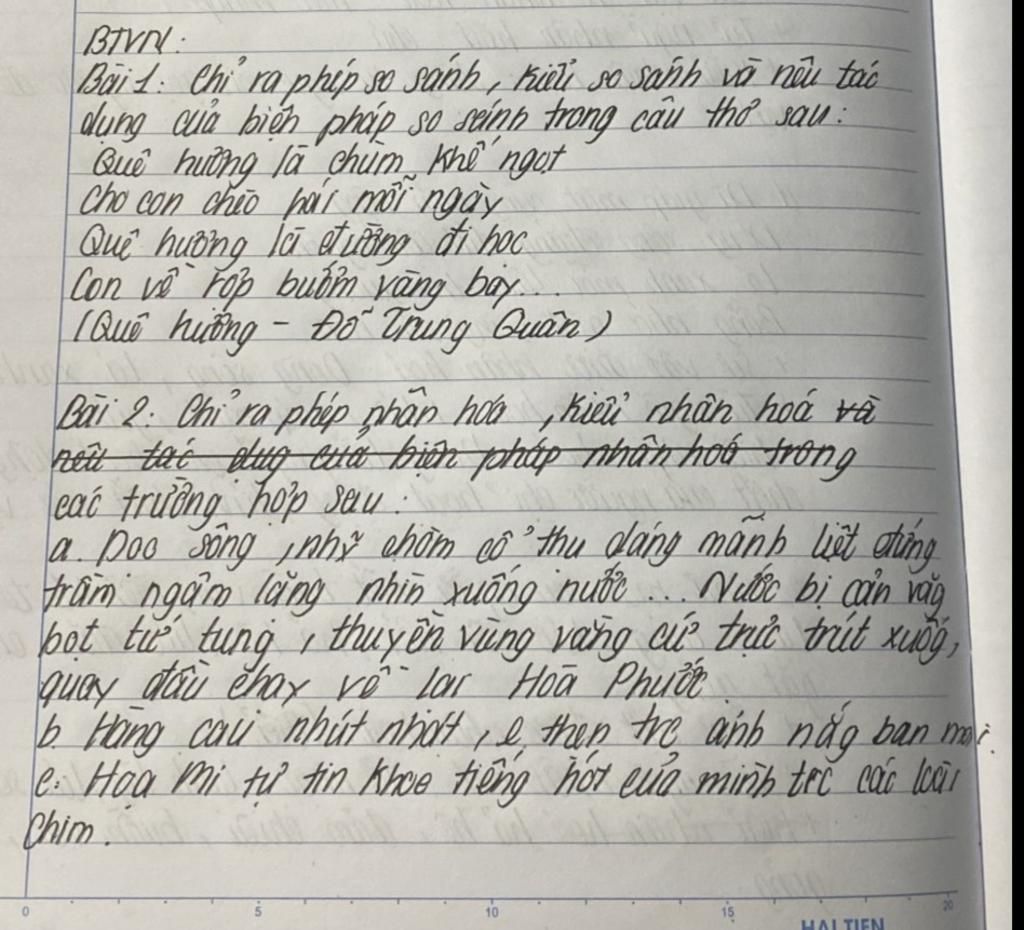 BTVN:
Bài 1: Chỉ ra phép so sánh, kiểu so sánh và nêu tác
dụng của biện pháp so sánh trong câu thơ sau:
Quê hương là chùm khế ngọt
Cho con chèo hái mỗi ngày
Quê hương là đường đi học
Con về rợp bướm vàng bay...
(Quê hương - Đỗ Trung Quân)
Bài 2: Chỉ ra phép nhân hóa, kiểu nhân hoá và
nêu tác dụg của biện pháp nhân hoá trong
các trường hợp sau:
a. Dọc sông, những chòm cổ thụ dáng mãnh liệt đứng
trầm ngâm lặng nhìn xuống nước... Nước bị cản văg
bọt tứ tung, thuyền vùng vằng cứ trực trụt xuốg,
quay đầu chạy về lại Hoà Phước
b. Hàng cau nhút nhát, e thẹn trc ánh nắg ban mai.
c. Hoạ Mi tự tin khoe tiếng hót của mình trc các loài
chim.
0 5 10 15 20
HẢI TIẾN